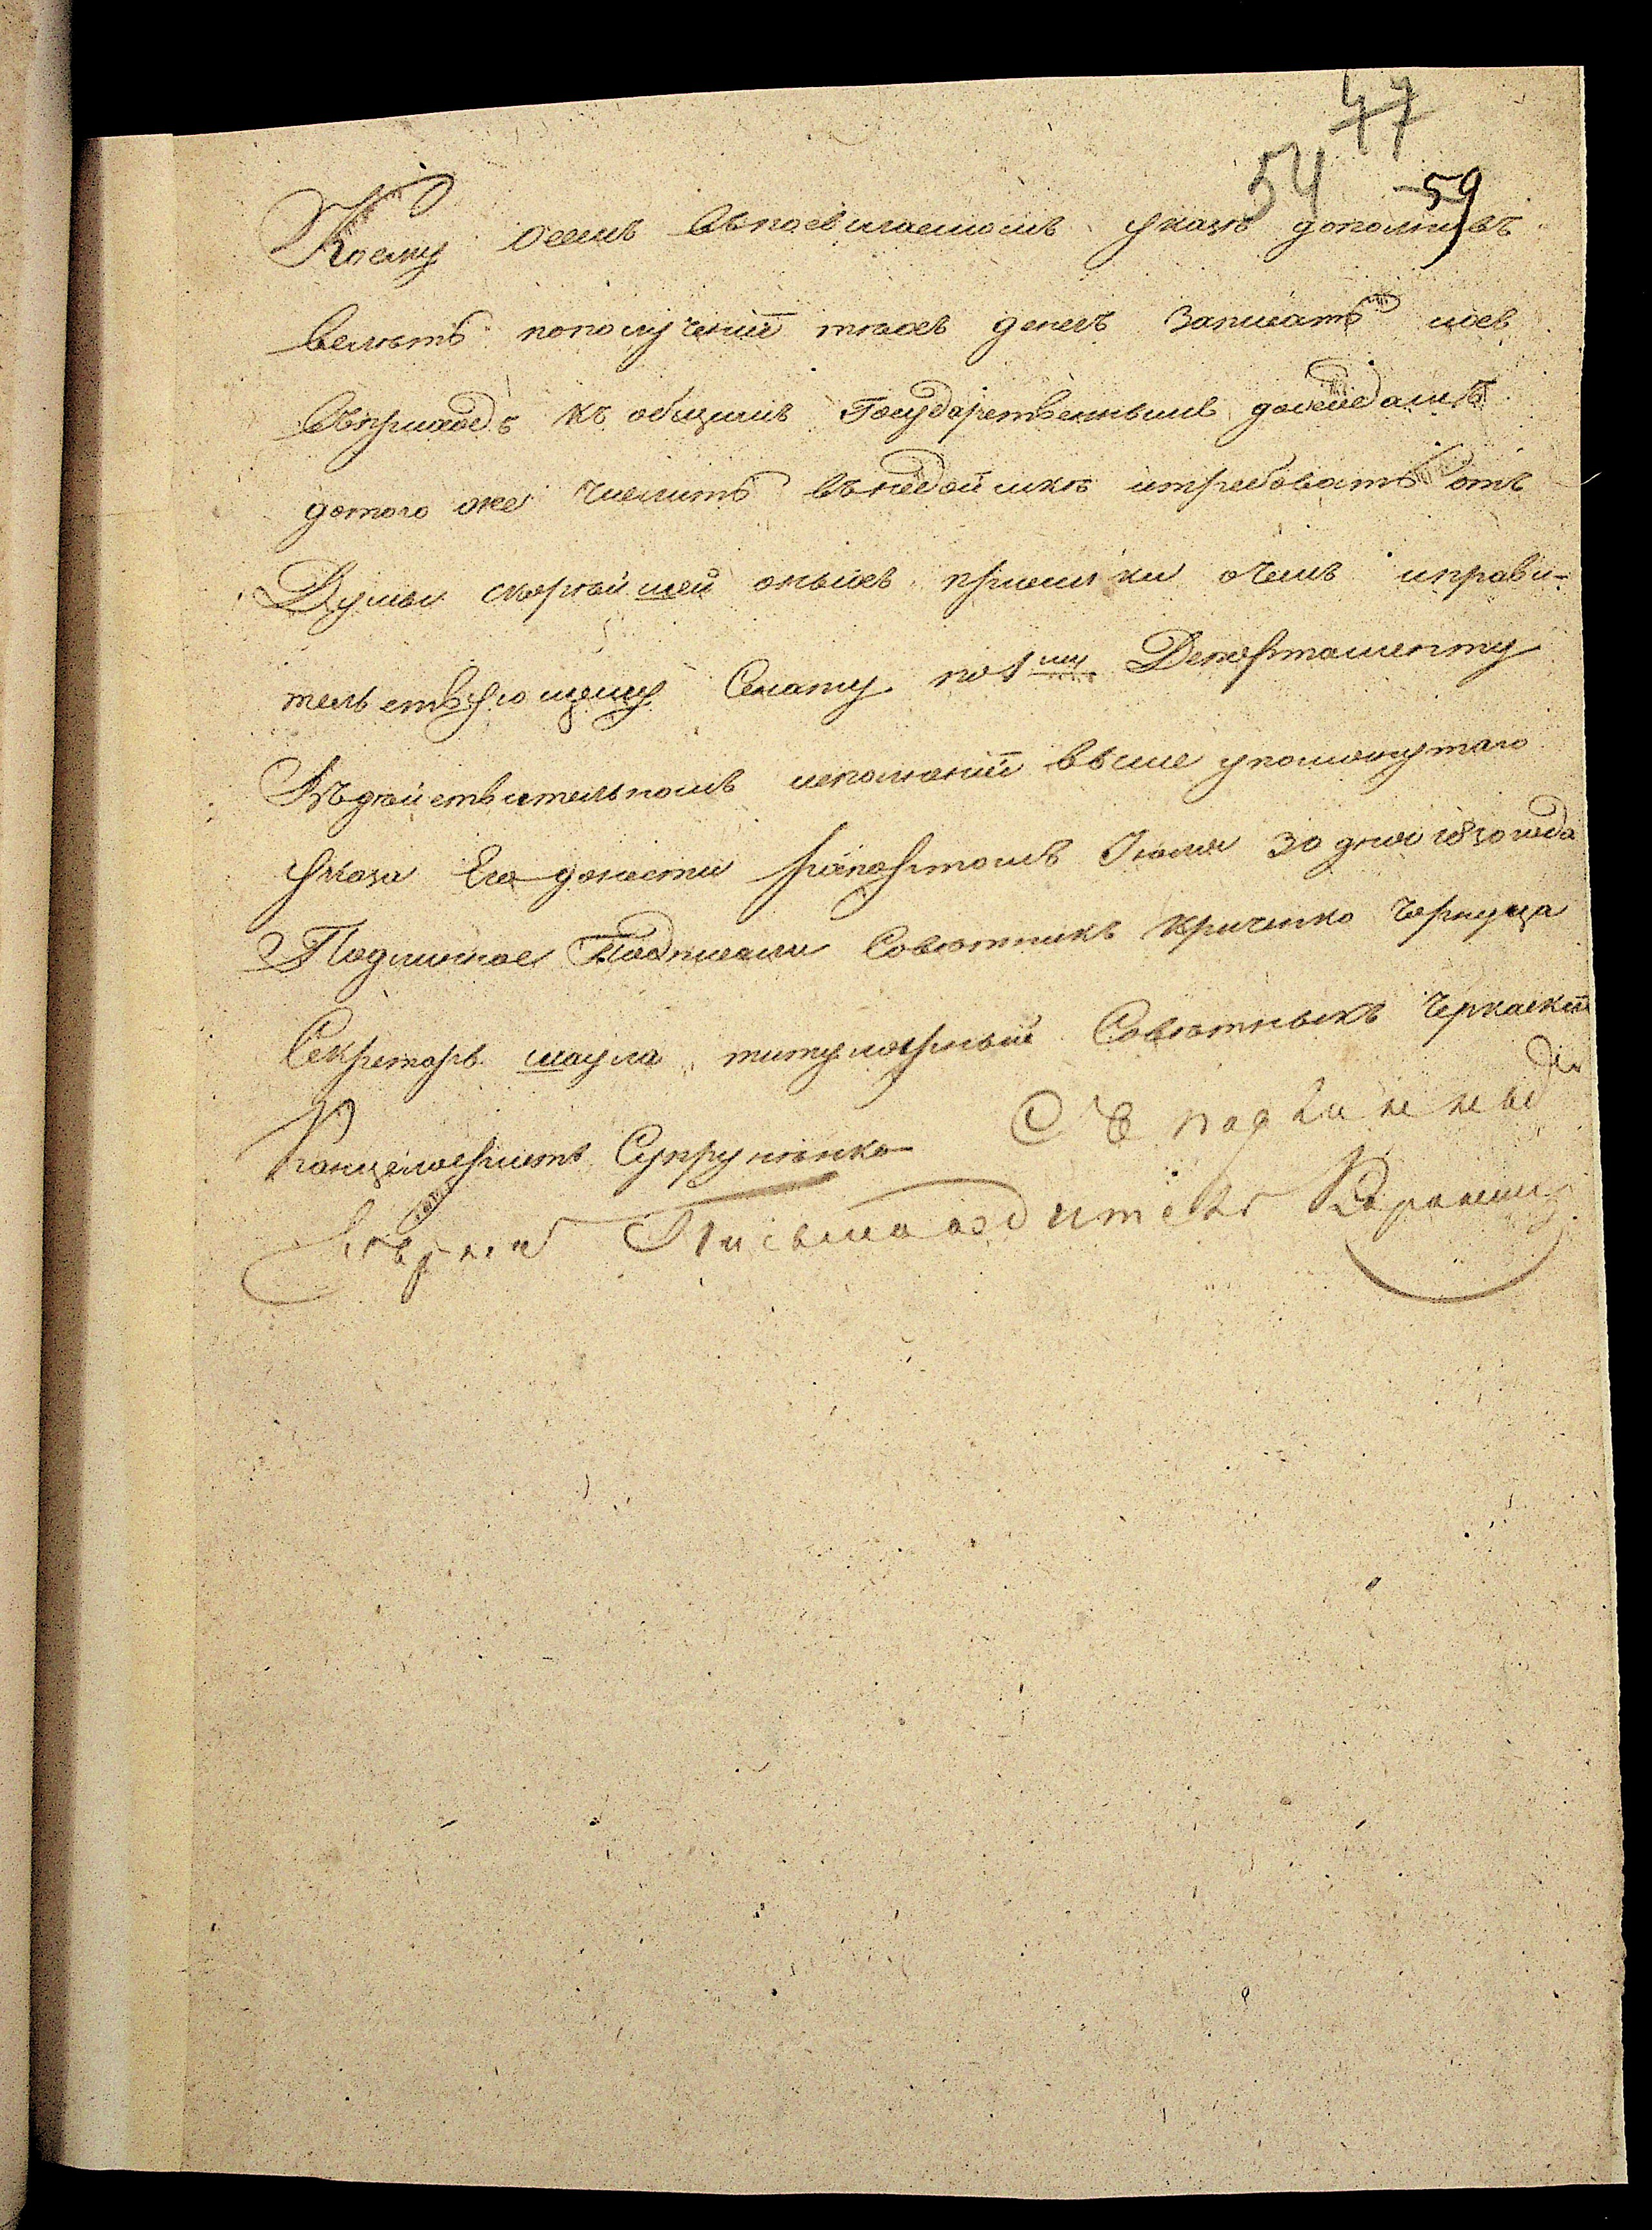 47
54 59
Коему осемъ впосылаемомъ указѣ дополнивъ
велеть пополученіи техъ денегъ записать ихъ
вприходъ къ общимъ Государственнымъ доходамъ
дотого же числить внедоимке итребовать отъ
Думы скорѣйшей оныхъ присылки очемъ иправи-
тельствующему Сенату по 1му Департаменту
Одѣйствительномъ исполненіи выше упомянутаго
указа Его донести рапортомъ Іюля 30 дня 1830 года
Подлинное Подписали Советникъ Криченко Чернуца
Секретарь Шаула титулярный Советникъ Черкаскій
Канцеляристъ Супруненко Съ подлиннымъ
Верно Письмоводитель